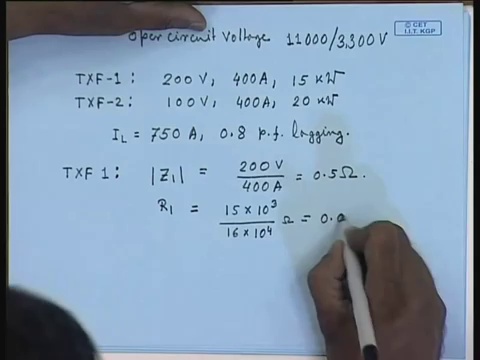 Open circuit Voltage 11000/3,300V
© CET
I.I.T. KGP
TXF-1: 200 V, 400A, 15 KW
TXF-2: 100 V, 400A, 20 KW
I_L = 750 A, 0.8 p.f. lagging.
TXF 1: |Z_1| = 200 V / 400A = 0.5 Ω.
R_1 = 15 × 10^3 / 16 × 10^4 Ω = 0.0